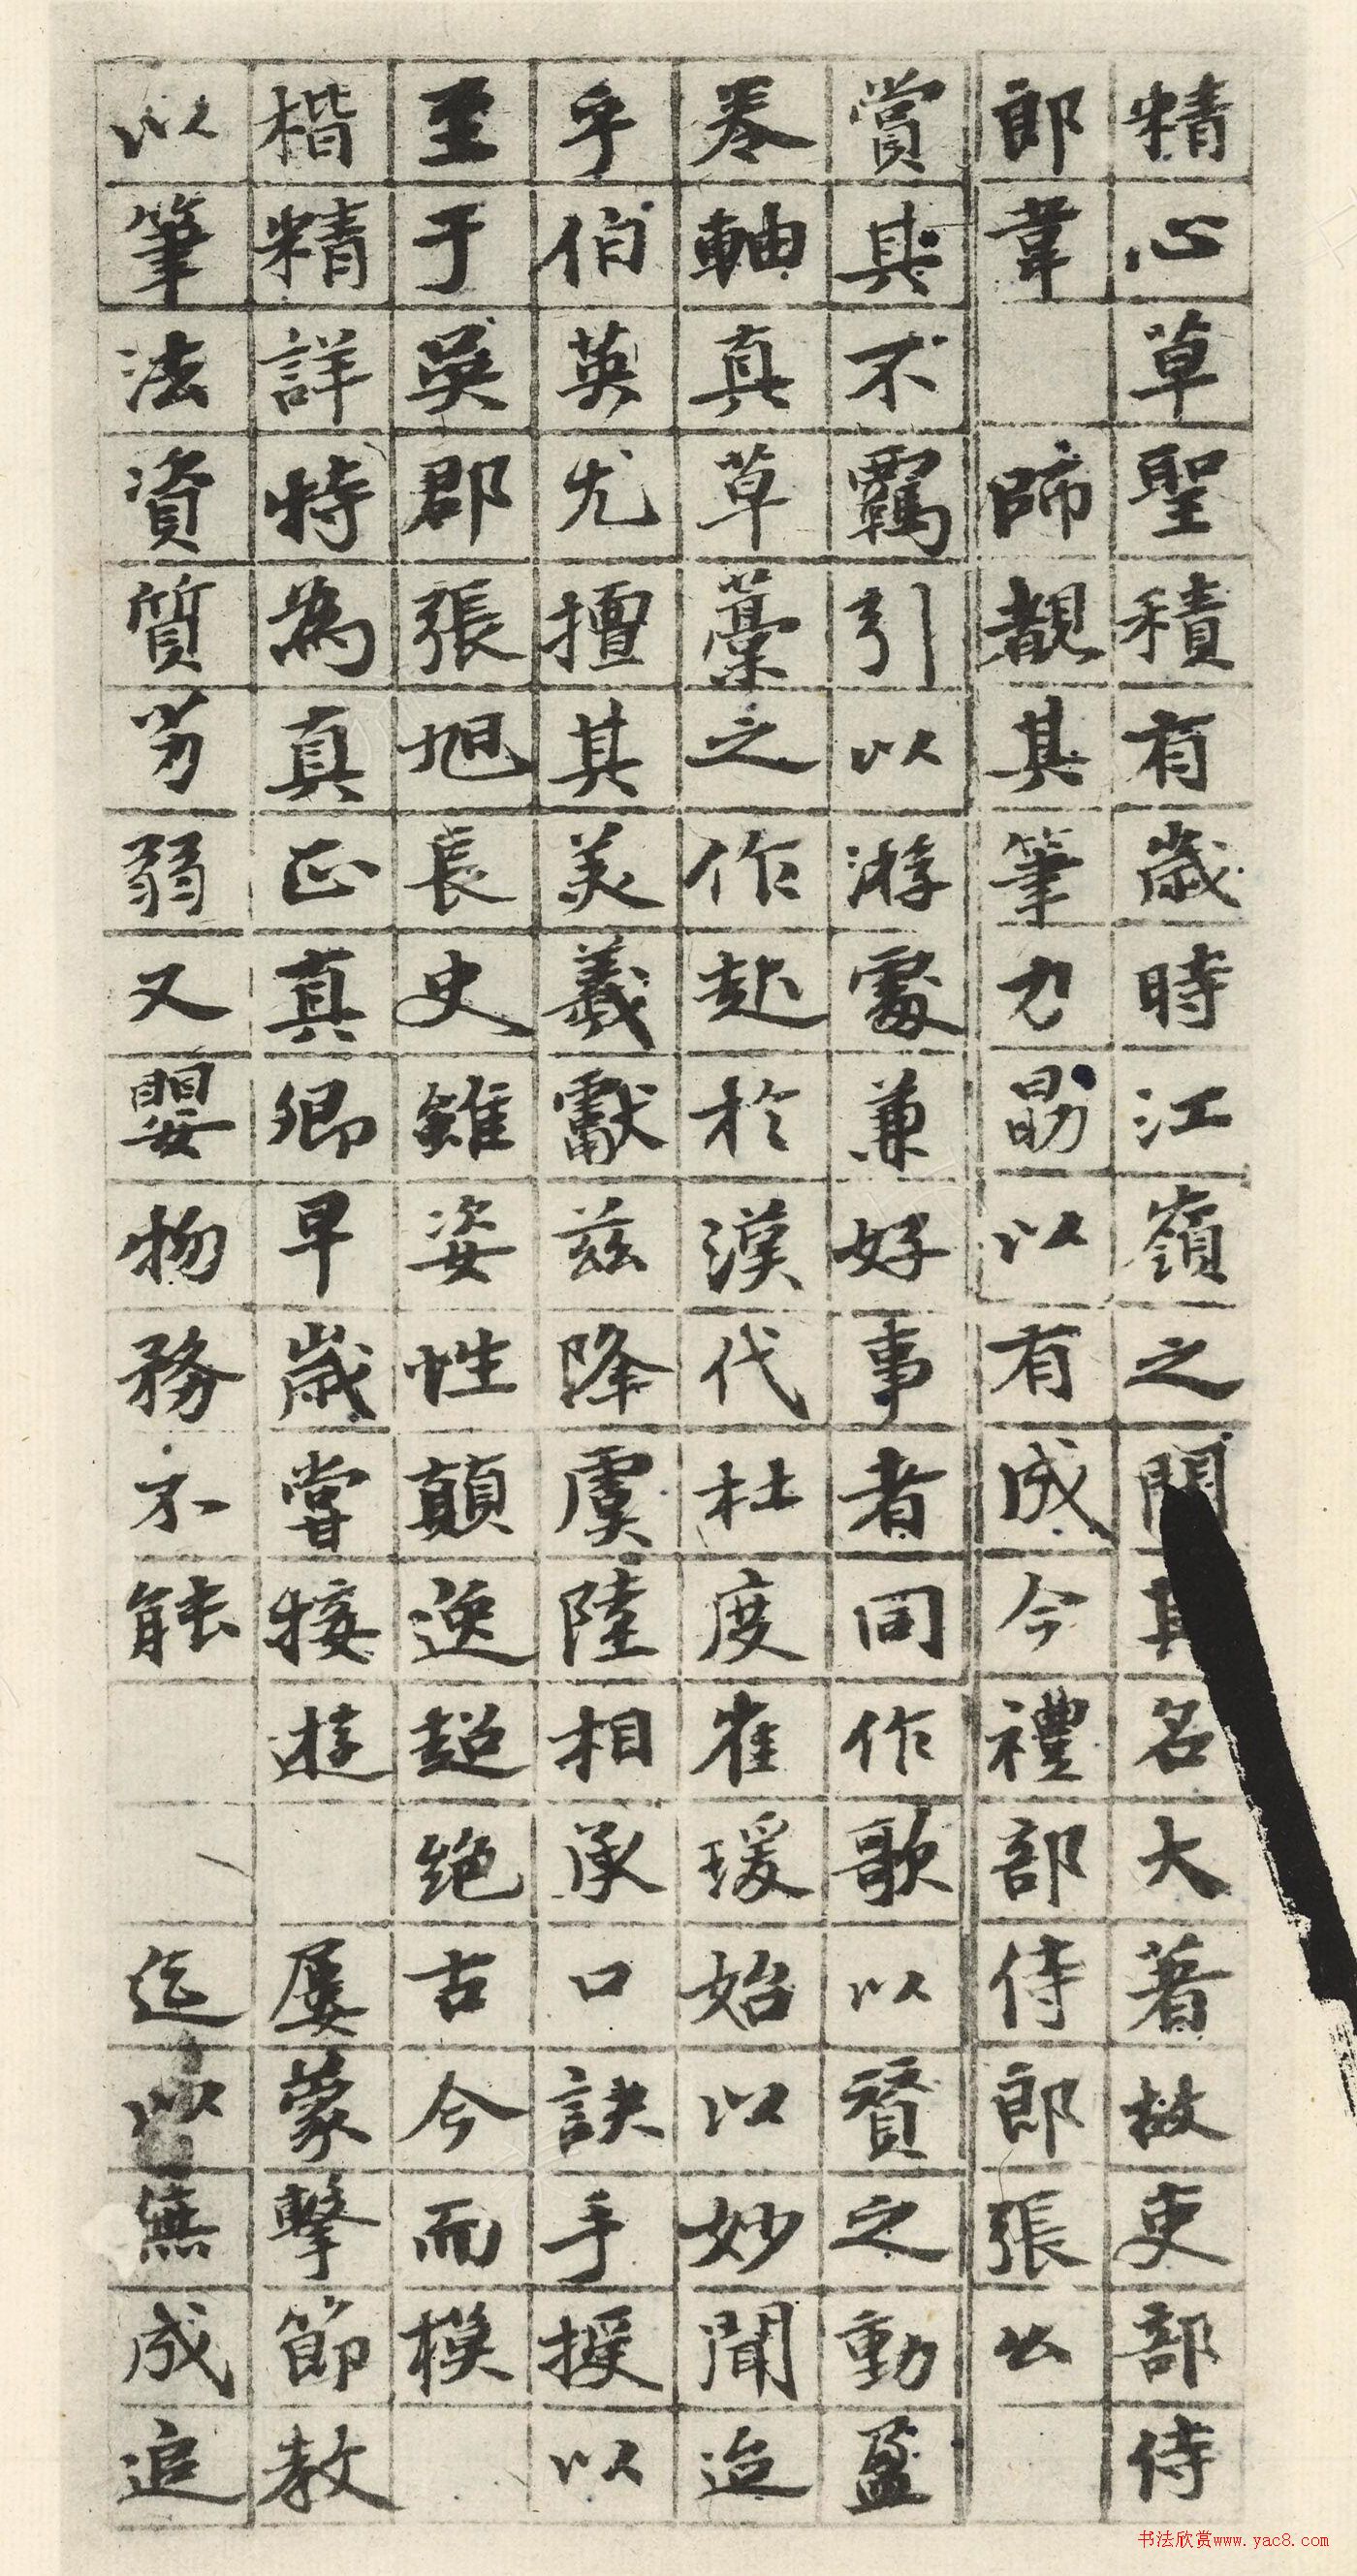 精心草聖積有歲時江嶺之間其名大著故吏部侍
郎韋 師覩其筆力勗以有成今禮部侍郎張公
賞其不羈引以游處兼好事者同作歌以贊之動盈
卷軸真草藁之作起於漢代杜度崔瑗始以妙聞迨
乎伯英尤擅其美羲獻茲降虞陸相承口訣手授以
至于吳郡張旭長史雖姿性顛逸超絕古今而模
楷精詳特為真正真卿早歲嘗接遊 屢蒙擊節教
以筆法資質劣弱又嬰物務不能 迄以無成追
书法欣赏www.yac8.com